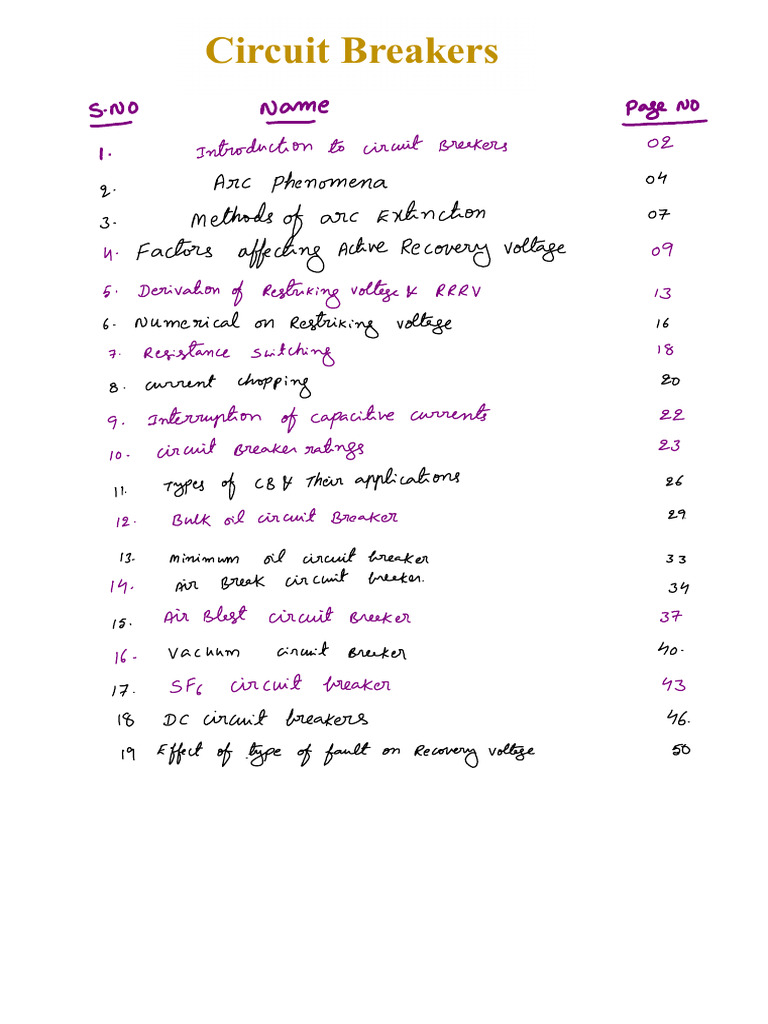 Circuit Breakers
S.NO Name Page NO
1. Introduction to circuit Breakers 02
2. Arc Phenomena 04
3. Methods of arc Extinction 07
4. Factors affecting Active Recovery voltage 09
5. Derivation of Restriking voltege & RRRV 13
6. Numerical on Restriking voltege 16
7. Resistance switching 18
8. current chopping 20
9. Interruption of capacitive currents 22
10. circuit Breaker ratings 23
11. Types of CB & Their applications 26
12. Bulk oil circuit Breaker 29
13. minimum oil circuit breaker 33
14. Air Break circuit breeker. 34
15. Air Blest circuit Breeker 37
16. Vacuum circuit Breeker 40.
17. SF6 circuit breaker 43
18 DC circuit breakers 46.
19 Effect of type of fault on Recovery voltege 50